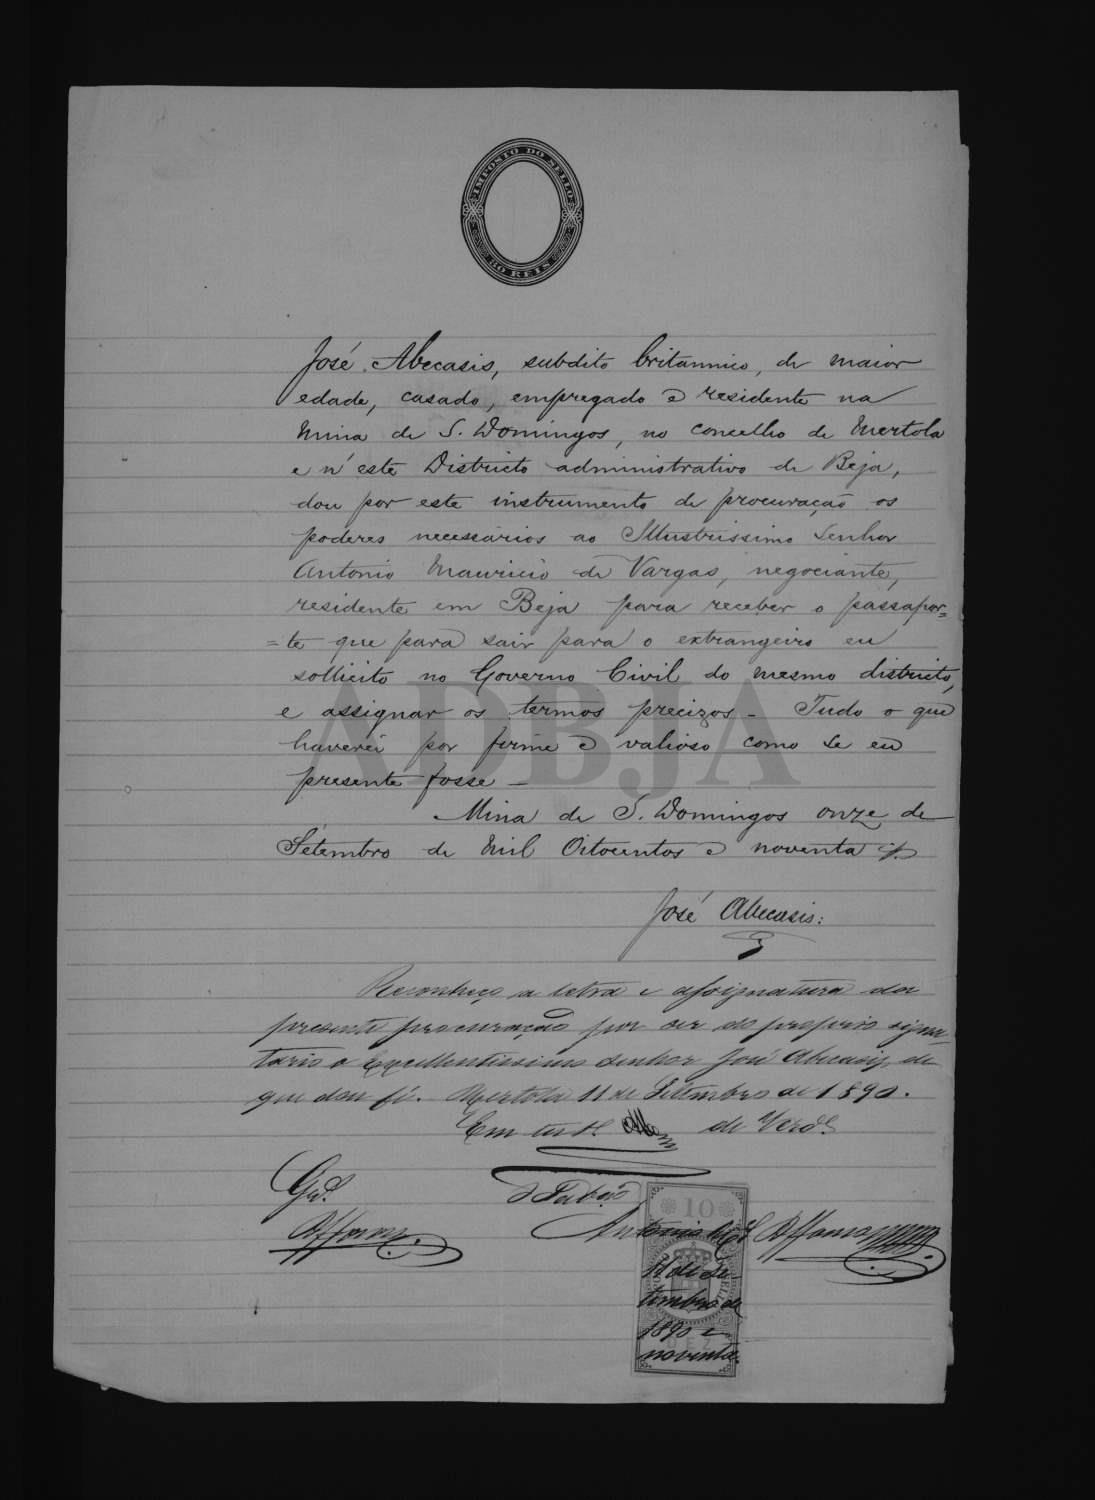 IMPOSTO DO SELLO
80 REIS
José Abecasis, subdito britannico, de maior
edade, casado, empregado e residente na
Mina de S. Domingos, no concelho de Mertola
e n'este Districto administrativo de Beja,
dou por este instrumento de procuração os
poderes necessarios ao Illustrissimo Senhor
Antonio Mauricio de Vargas, negociante,
residente em Beja para receber o passapor=
=te que para sair para o extrangeiro eu
sollicito no Governo Civil do mesmo districto,
e assignar os termos precizos - Tudo o que
haverei por firme e valioso como se eu
presente fosse -
Mina de S. Domingos onze de
Setembro de Mil Oitocentos e noventa
José Abecasis:
Reconheço a letra e assignatura da
presente procuração por ser do proprio signa-
tario o Excellentissimo Senhor José Abecasis, de
que dou fé. Mertola 11 de Setembro de 1890.
Em test.º de Verd.e
O Tabião
Antonio Affonso
10
11 de Se-
tembro de
1890 e
noventa
ADBJA